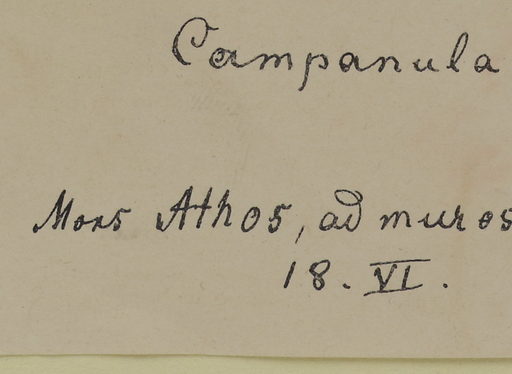 Campanula
Mons Athos, ad muros
18. VI.